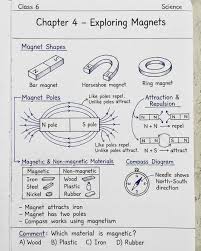 Class 6 Science
Chapter 4 – Exploring Magnets
Magnet Shapes
Bar magnet Horseshoe magnet Ring magnet
Magnet Poles
Like poles repel.
Unlike poles attract.
Attraction & Repulsion
N pole S pole
Like poles repel.
Unlike poles attract.
N + N → repel
Magnetic & Non-magnetic Materials
Magnetic Non-magnetic
Iron Wood
Steel Plastic
Nickel Rubber
Compass Diagram
Needle shows
North–South
direction
- Magnet attracts iron
- Magnet has two poles
- Compass works using magnetism
Comment: Which material is magnetic?
A) Wood B) Plastic C) Iron D) Rubber